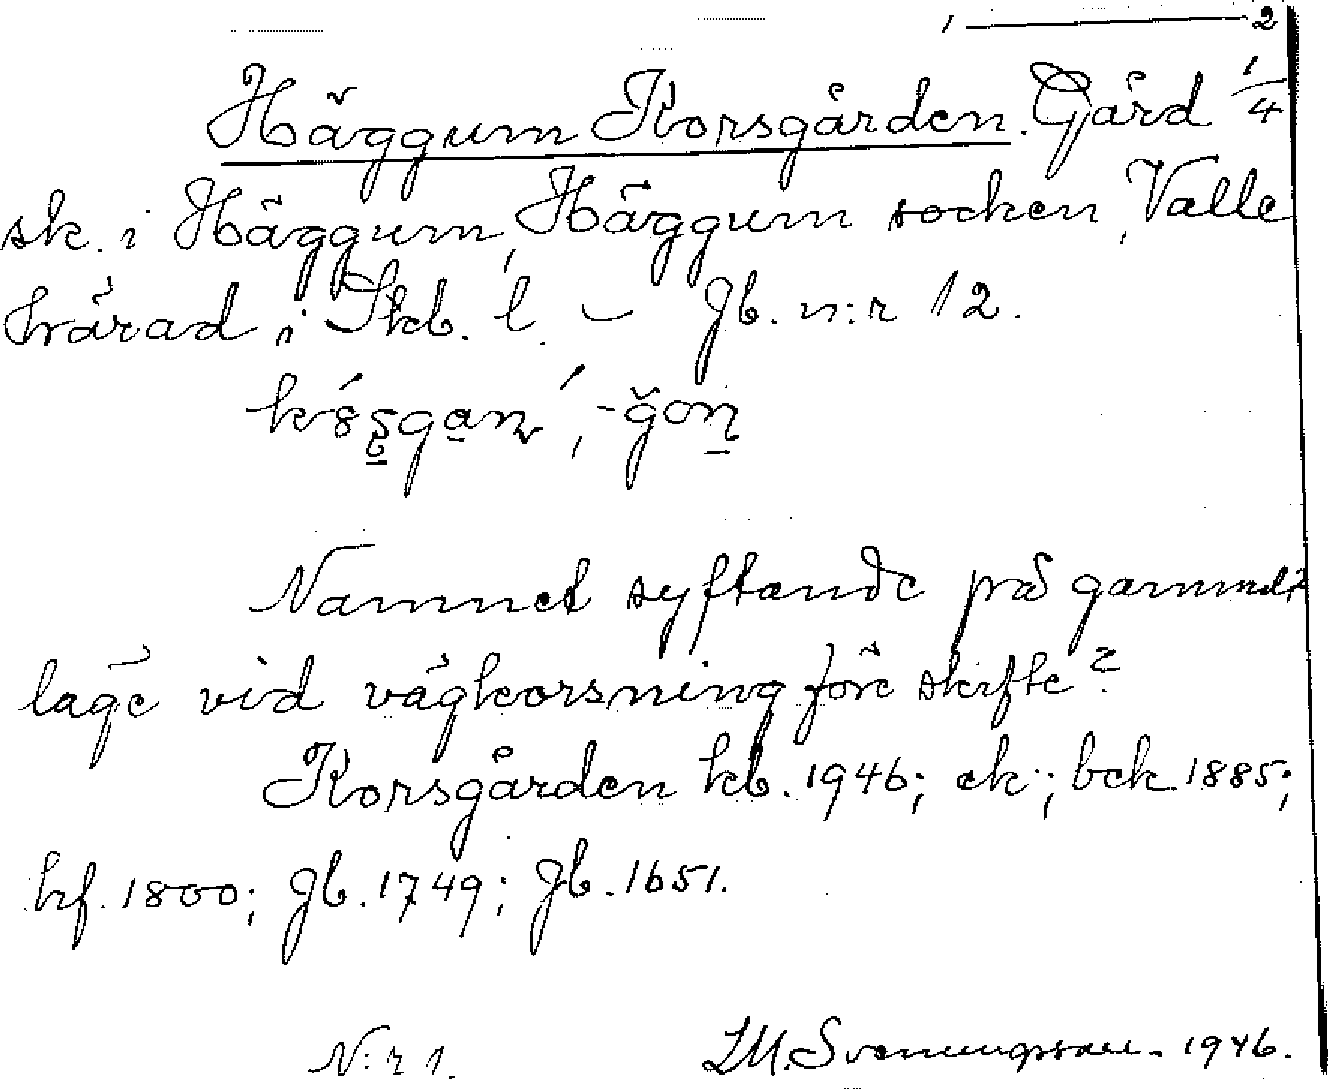 1 — 2
Häggum Korsgården. Gård 1/4
sk. i Häggum, Häggum socken, Valle
härad i Skb. l. – Jb. n:r 12.
Namnet syftande på gammalt
läge vid vägkorsning före skifte?
Korsgården kb. 1946; ek.; bek. 1885;
hf. 1800; Jb. 1749; Jb. 1651.
N:r 1. LM. Svenungsson 1946.